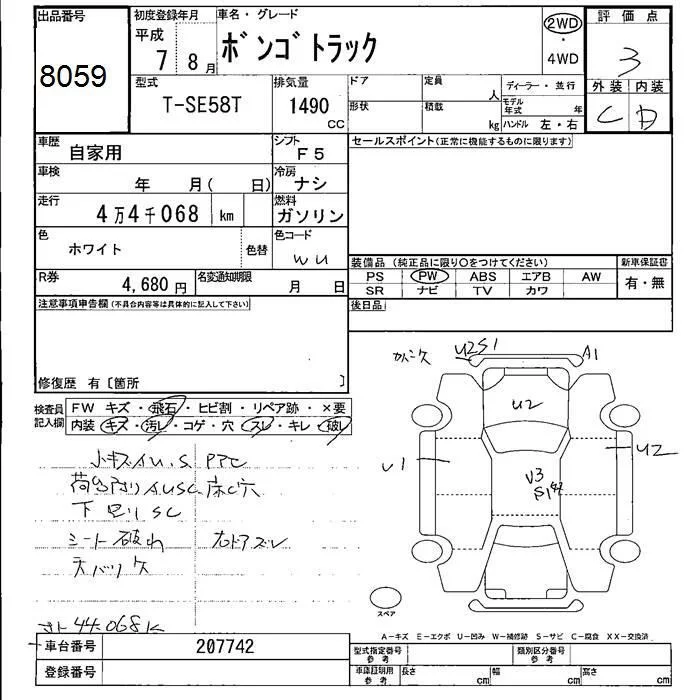 出品番号
8059
初度登録年月
平成
7 8 月
車名・グレード
ボンゴトラック
2WD
・
4WD
評価点
3
外装 内装
C D
型式
T-SE58T
排気量
1490
CC
ドア
定員
人
形状
積載
kg
ディーラー・並行
モデル年式
年
ハンドル 左・右
車歴
自家用
シフト
F5
セールスポイント(正常に機能するものに限ります)
車検
年 月( 日)
冷房
ナシ
走行
4万4千068 km
燃料
ガソリン
色
ホワイト
色替
色コード
WU
装備品 (純正品に限り○をつけてください)
新車保証書
PS PW ABS エアB AW
SR ナビ TV カワ
有・無
R券
4,680 円
名変通知期限
月 日
後日品
注意事項申告欄(不具合内容等は具体的に記入して下さい)
修復歴 有〔箇所 〕
検査員記入欄
FW キズ・飛石・ヒビ割・リペア跡・×要
内装・キズ・汚レ・コゲ・穴・スレ・キレ・破レ
小キズAU.S PTC
下回りSC
シート破れ 右ドアズレ
44.068K
U2S1
A1
U2
U1
U2
V3
スペア
A-キズ E-エクボ U-凹み W-補修跡 S-サビ C-腐食 XX-交換済
車台番号
207742
登録番号
型式指定番号
参考
類別区分番号
参考
車庫証明用
参考
長さ
cm
幅
cm
高さ
cm